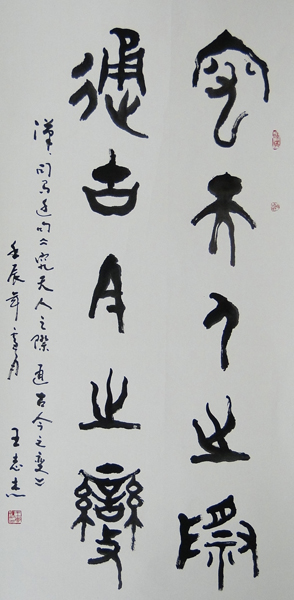 究天人之際
通古今之變
漢·司马迁句《究天人之際 通古今之变》
壬辰年夏月
王志杰